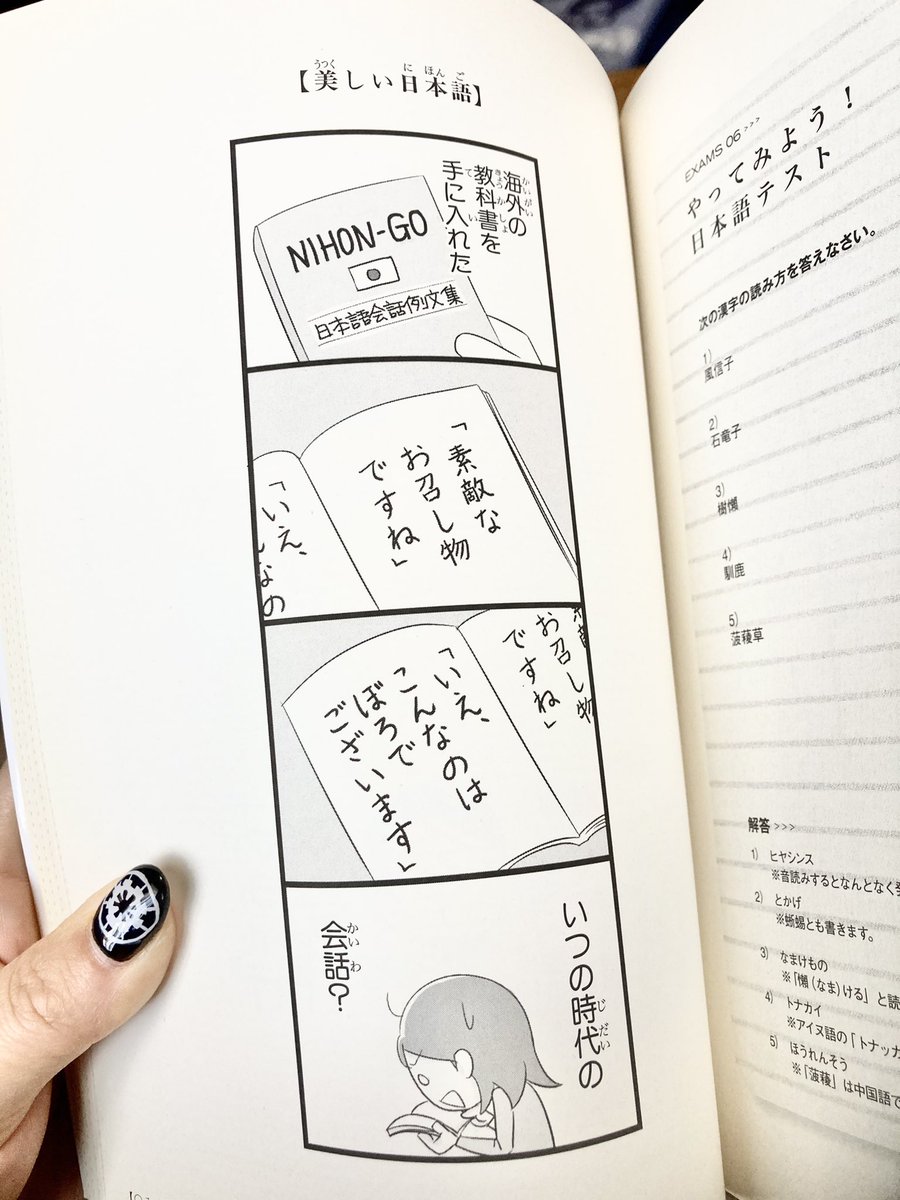 【美しい日本語】
海外の
教科書を
手に入れた
NIHON-GO
日本語会話例文集
「素敵な
お召し物
ですね」
「いえ、
なの
お召し物
ですね」
「いえ、
こんなのは
ぼろで
ございます」
いつの時代の
会話?
EXAMS 06 >>>
やってみよう!
日本語テスト
次の漢字の読み方を答えなさい。
1)
風信子
2)
石竜子
3)
樹懶
4)
馴鹿
5)
菠薐草
解答 >>>
1) ヒヤシンス
※音読みするとなんとなく発
2) とかげ
※蜥蜴とも書きます。
3) なまけもの
※「懶(なま)ける」と読
4) トナカイ
※アイヌ語の「トナッカ
5) ほうれんそう
※「菠薐」は中国語で